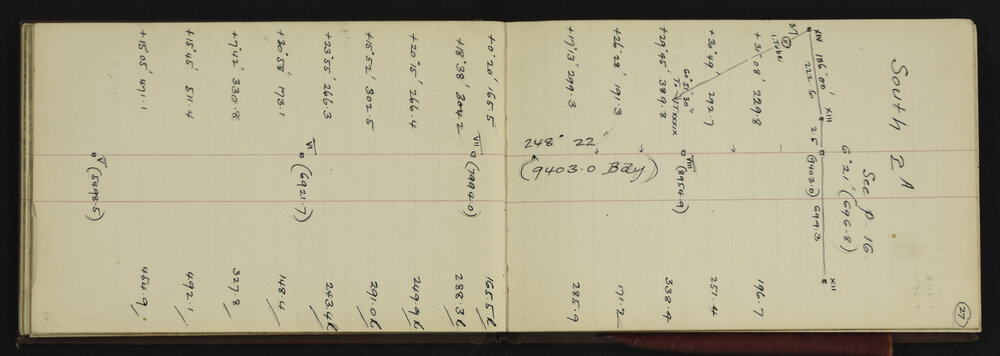 27
South I A
See p. 16.
6°21' (696.8)
XIV 186°00' XIII 25 (9403.0) 697.3 XII
222.50
I Tube
+31°08' 229.8 196.7
+30°49' 292.7 251.4
60°51'30"
To XXXIX
VIII (8954.9)
+29°45' 389.8 338.4
+26°28' 191.3 171.2
248° 22'
(9403.0 Bdy)
+17°13' 299.3 285.9
+0°20' 165.5 165.5
VII (7994.0)
+18°38' 304.2 288.3
+20°15' 266.4 249.9
+15°52' 302.5 291.0
+23°55' 266.3 243.4
VI (6921.7)
+30°58' 173.1 148.4
+7°42' 330.8 327.8
+15°45' 511.4 492.1
+15°05' 471.1 454.9
V (5498.5)